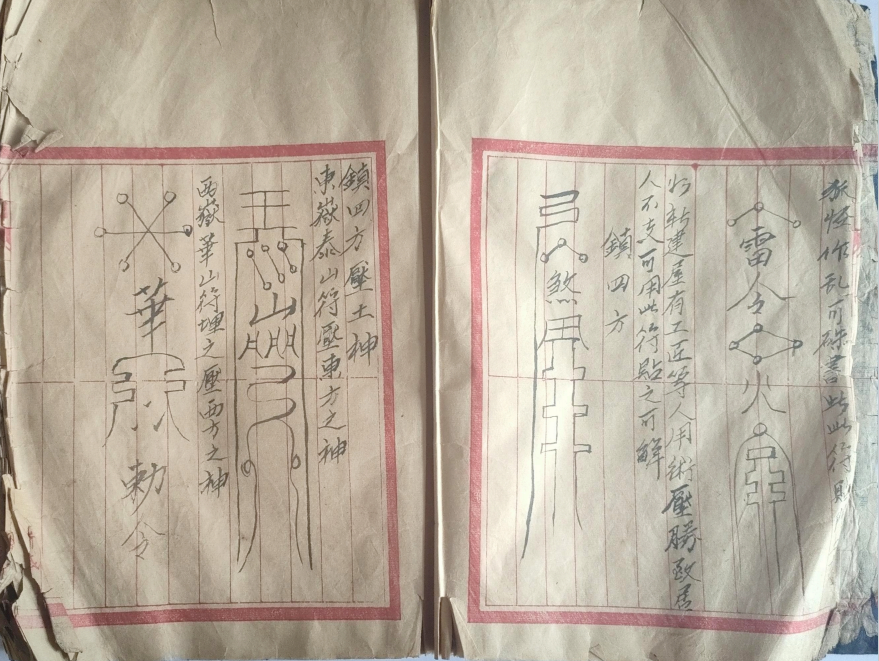 怪作乱可硃書此此符則
雷令火
新建屋有工匠等人用術壓勝致居
人不可用此符貼之可解
鎮四方
煞用
鎮四方壓土神
東嶽泰山符壓東方之神
山
西嶽華山符埋之壓西方之神
華勅令